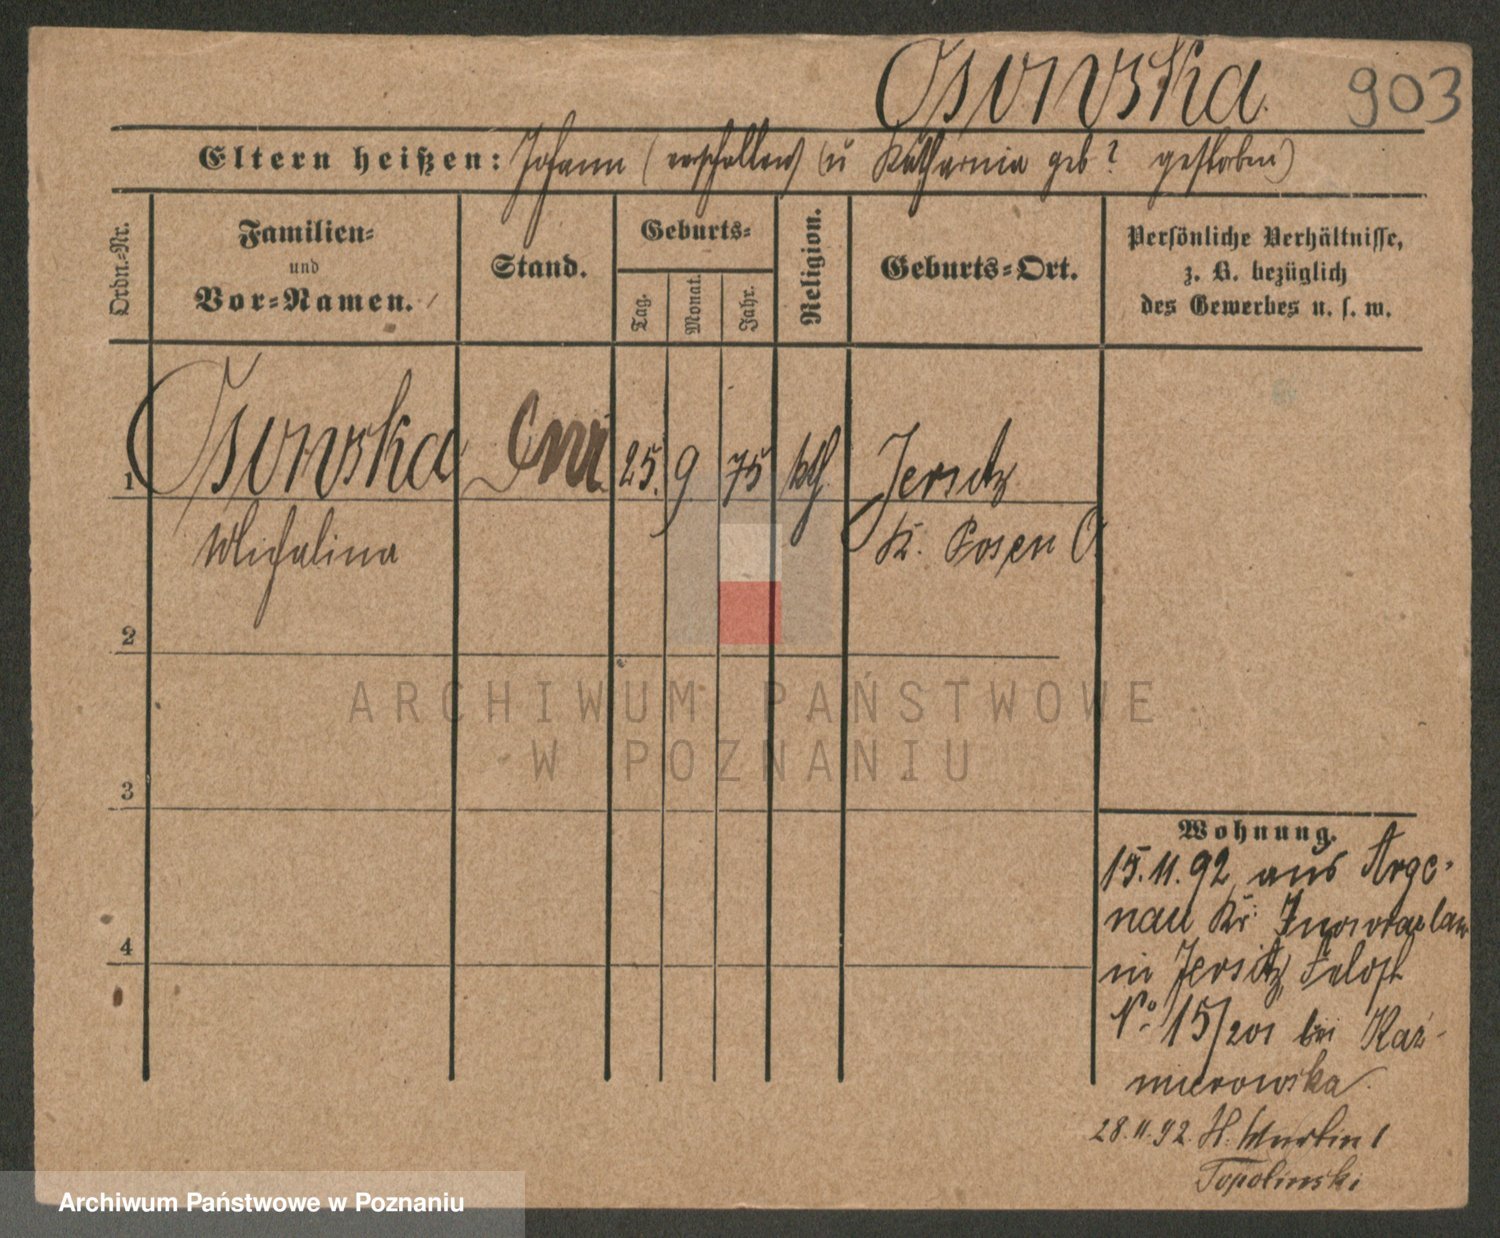 Osowska 903
Eltern heißen: Johann (verschollen) (u Katharnia geb? gestorben)
Ordn.-Nr.
Familien-
und
Vor-Namen.
Stand.
Geburts-
Tag.
Monat.
Jahr.
Religion.
Geburts-Ort.
Persönliche Verhältnisse,
z. B. bezüglich
des Gewerbes u. s. w.
1 Osowska 25. 9 75 kth. Jersitz
Michalina Kr. Posen O.
2
3
4
Wohnung.
15.11.92 aus Arge-
nau Kr. Inowrazlaw
in Jersitz,
No 15/201 bei Kaź-
mierowska.
28.11.92. St. Martin 1
Topolinski
ARCHIWUM PAŃSTWOWE
W POZNANIU
Archiwum Państwowe w Poznaniu